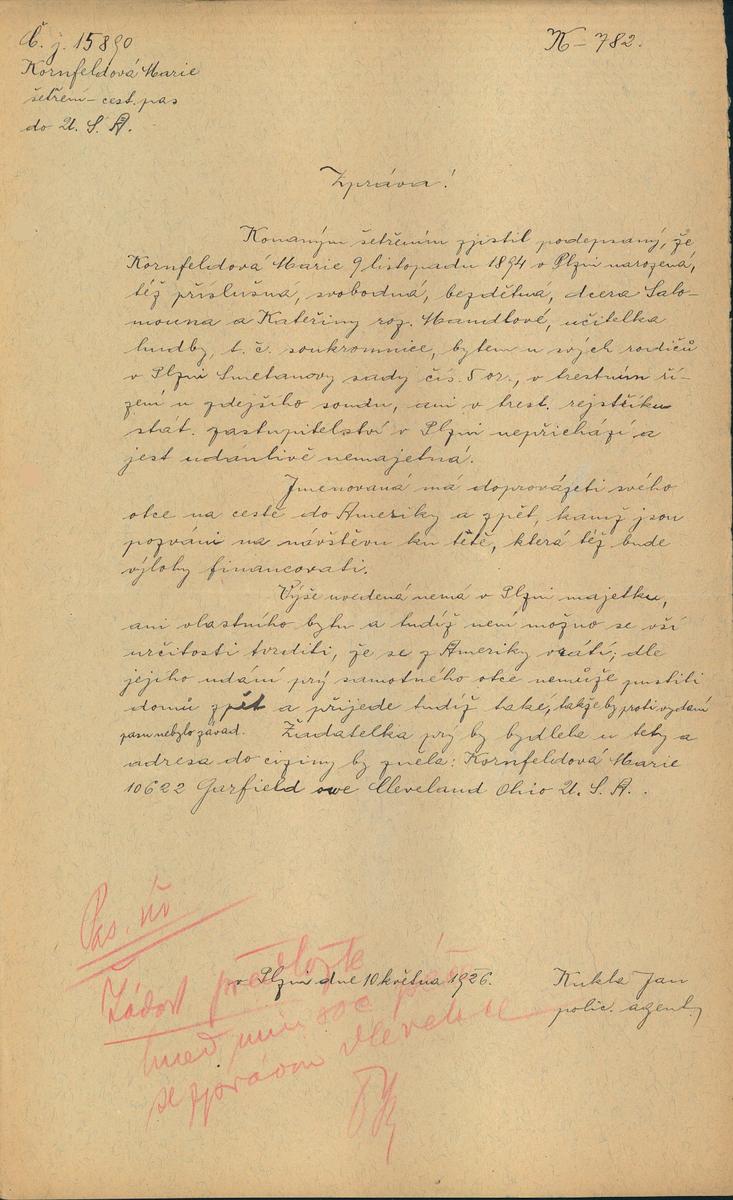 Č. j. 15890
K – 782.
Kornfeldová Marie
šetření – cest. pas
do U. S. A.
Zpráva!
Konaným šetřením zjistil podepsaný, že
Kornfeldová Marie 9 listopadu 1894 v Plzni narozená,
též příslušná, svobodná, bezdětná, dcera Salo-
mouna a Kateřiny roz. Mandlové, učitelka
hudby, t. č. soukromnice, bytem u svých rodičů
v Plzni Smetanovy sady čís. 5 or., v trestním ří-
zení u zdejšího soudu, ani v trest. rejstříku
stát. zastupitelství v Plzni nepřichází a
jest udanlivě nemajetná.
Jmenovaná má doprovázeti svého
otce na cestě do Ameriky a zpět, kamž jsou
pozváni na návštěvu ku tětě, která též bude
výlohy financovati.
Výše uvedená nemá v Plzni majetku,
ani vlastního bytu a tudíž není možno se vší
určitosti tvrditi, že se z Ameriky vrátí; dle
jejího udání prý samotného otce nemůže pustiti
domů zpět a přijede tudíž také, takže by proti vydání
pasu nebylo závad. Žadatelka prý by bydlela u tety a
adresa do ciziny by zněla: Kornfeldová Marie
10622 Garfield owe Cleveland Ohio U. S. A. .
Pas. úř
Žádost předložte
v Plzni dne 10 května 1926.
Kukla Jan
polic. agent
hned
se zprávou